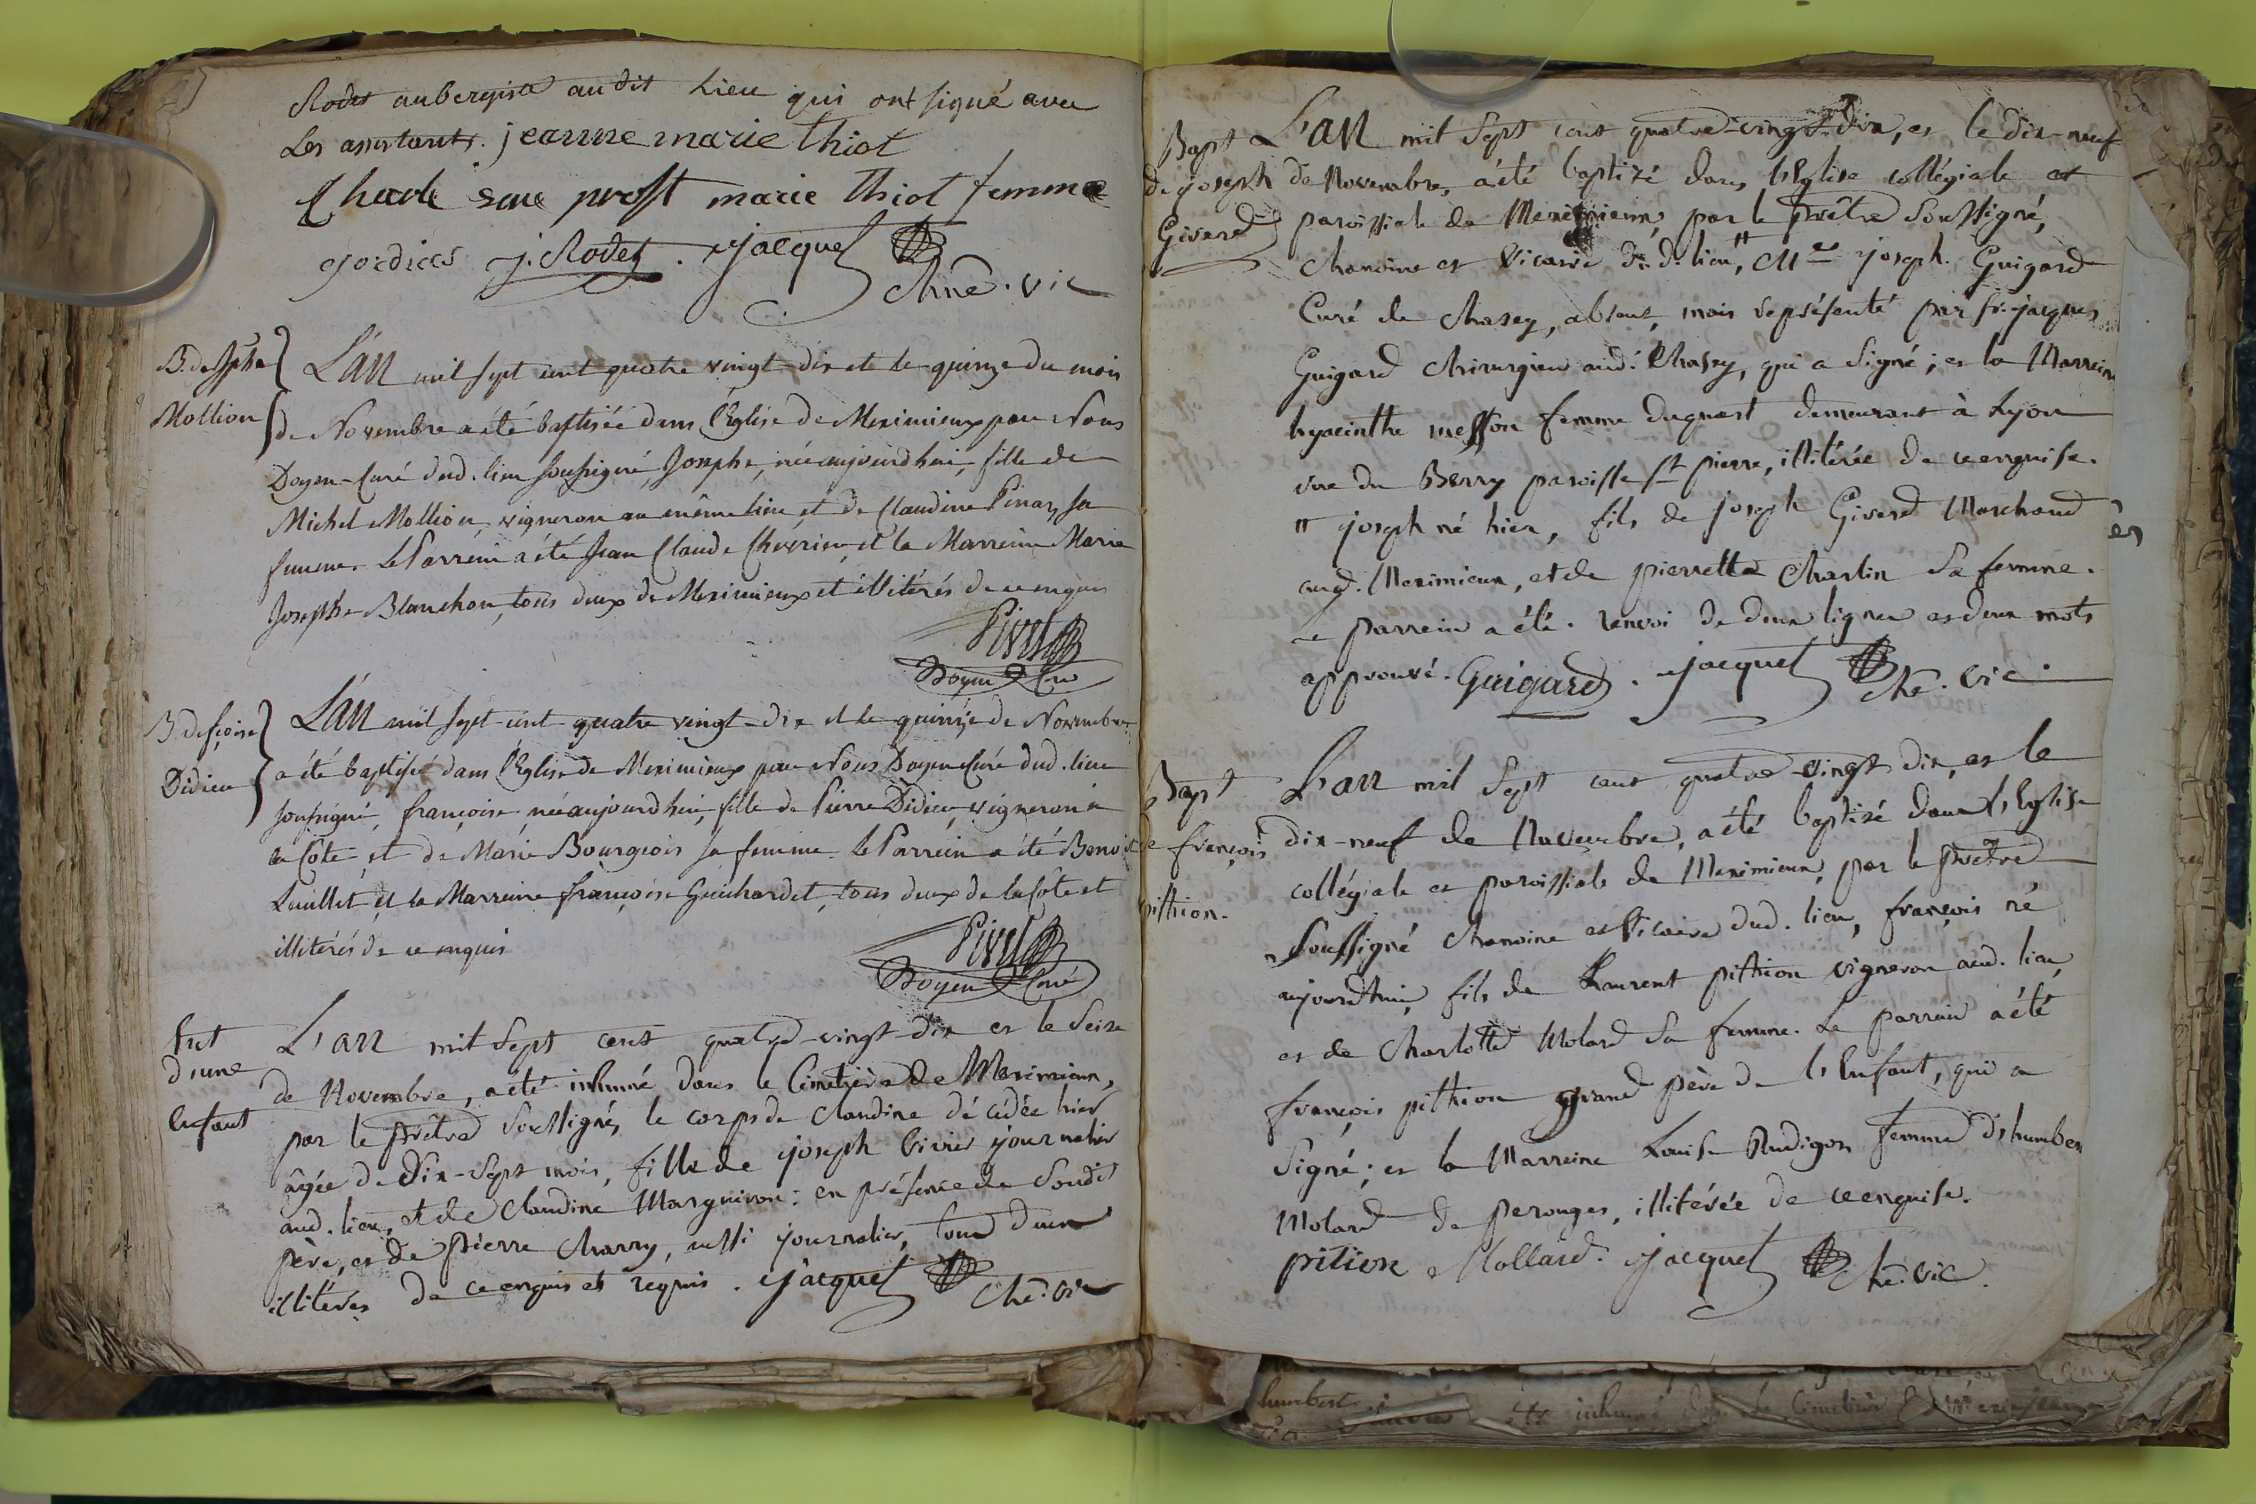 Rodet aubergiste audit lieu qui ont signé avec
Les assistants. jeanne marie thiot
marie thiot femme
j. Rodet. jacquet
Chne. vic
B. de Jphe
Mollion
L'an mil sept cent quatre vingt-dix et le quinze du mois
de Novembre a été baptisée dans l'Eglise de Meximieux par Nous
Doyen-Curé dud. lieu soussigné, Josephe, née aujourdhui, fille de
Michel Mollion, vigneron au même lieu, et de Claudine Pinaz, sa
femme. Le Parrein a été Jean Claude et la Marreine Marie
Josephe Blanchon, tous deux de Meximieux et illitérés de ce enquis
Pivet
Doyen Curé
B. de fçoise
Didieu
L'an mil sept-cent-quatre vingt-dix et le quinze de Novembre
a été baptisée dans l'Eglise de Meximieux par Nous Doyen Curé dud. lieu
soussigné, françoise née aujourdhui, fille de Pierre Didieu, vigneron à
la Côte, et de Marie Bourgeois sa femme. Le Parrein a été Benoit
Luillet, et la Marreine françoise Guichardet, tous deux de la Côte et
illitérés de ce enquis
Pivet
Doyen Curé
d'une
Enfant
L'an mil Sept cent quatre-vingt-dix et le Seize
de Novembre, a été inhumé dans le Cimetière de Meximieux,
par le prêtre Soussigné, le corps de Claudine décédée hier
âgée de Dix-Sept mois, fille de joseph journalier
aud. lieu, et de Claudine Marguiron: en présence de Sondit
père, et de pierre Charry, aussi journalier, tous deux
illiterés de ce enquis et requis. jacquet Chne. vic
Bapt
de joseph
Giverd
L'an mil Sept cent quatre-vingt-dix, et le dix-neuf
de Novembre, a été baptizé dans l'Eglise collégiale et
paroissiale de Meximieux, par le prêtre Soussigné,
chanoine et Vicaire du d. lieu, " Mre joseph Guigard
Curé de Chazey, absent, mais représenté par fr. jacques
Guigard chirurgien aud. Chazey, qui a Signé; et la Marreine
hyacinthe messon femme duquart demeurant à Lyon
rue du Berry paroisse St pierre, illitérée de ce enquise.
" joseph né hier, fils de joseph Giverd Marchand
aud. Meximieux, et de pierrette Charlin Sa femme.
Le parrein a été. renvoi de deux lignes et deux mots
approuvé. Guigard. jacquet Chne. vic.
Bapt
de françois
pithion.
L'an mil Sept cent quatre-vingt dix, et le
dix-neuf de Novembre, a été baptizé dans l'Eglise
collégiale et paroissiale de Meximieux, par le prêtre
Soussigné Chanoine et Vicaire dud. lieu, françois né
aujourd'hui, fils de Laurent pithion vigneron aud. lieu,
et de Charlotte Molard Sa femme. Le parrein a été
françois pithion grand père de l'Enfant, qui a
Signé; et la Marreine Louise Rudigoz femme d'humbert
Molard de perouges, illitérée de ce enquise.
pition Mollard. jacquet Chne. vic.
humbert